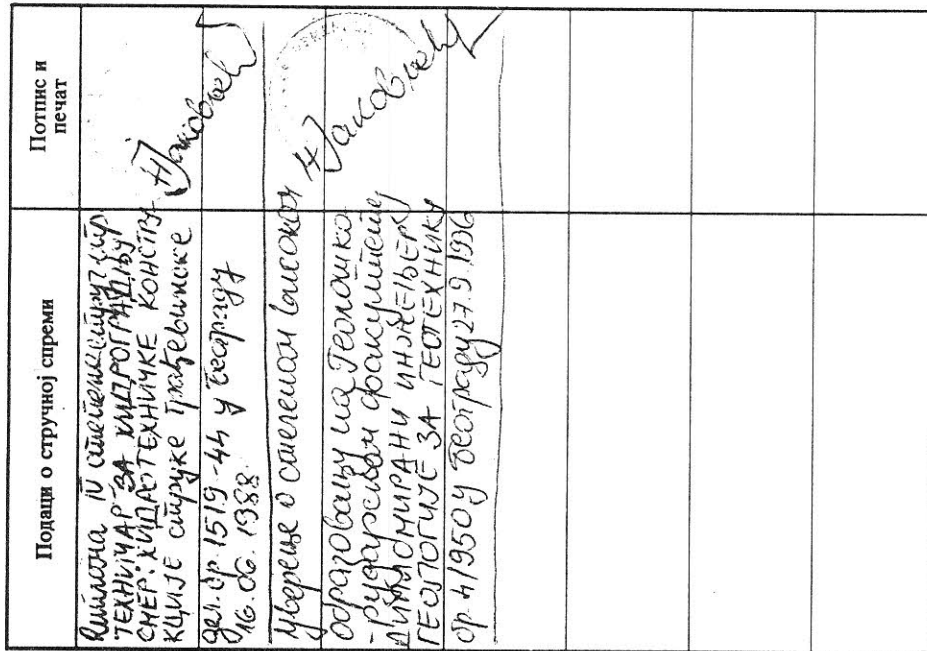 Подаци о стручној спреми
Потпис и
печат
Диплома IV степена струч. спр
ТЕХНИЧАР ЗА ХИДРОГРАДЊУ
СМЕР: ХИДРОТЕХНИЧКЕ КОНСТРУ-
КЦИЈЕ струке грађевинске
дел. бр. 1519-44 у Београду
16.06.1988.
Н Јаковљевић
Уверење о стеченом високом
образовању на Геолошко
-рударском факултету
ДИПЛОМИРАНИ ИНЖЕЊЕР
ГЕОЛОГИЈЕ ЗА ГЕОТЕХНИКУ
бр. 4/1950 у Београду 27.9.1996
Н Јаковљевић